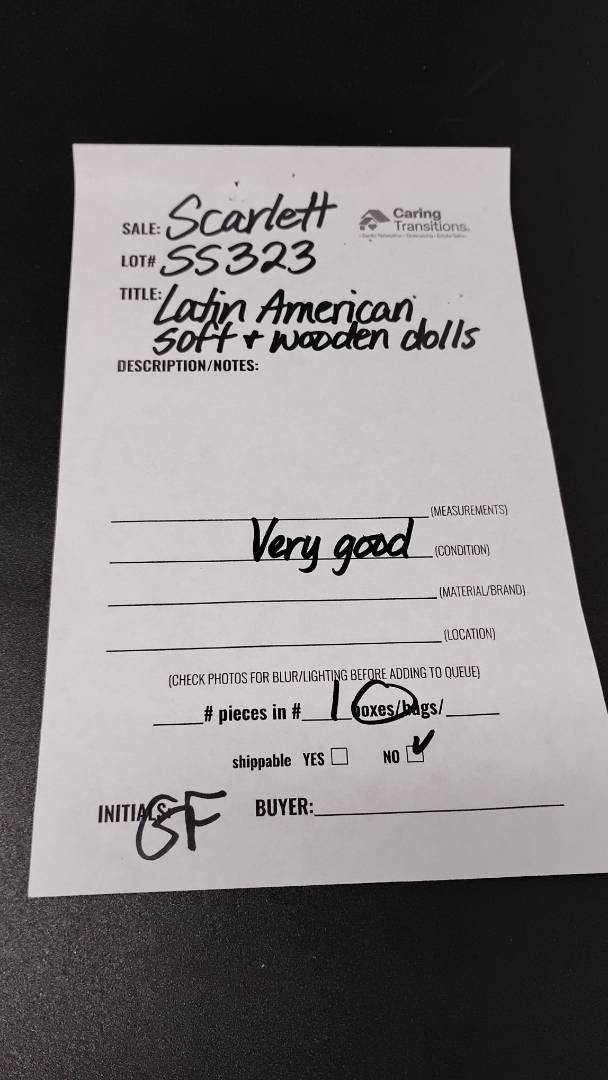 SALE: Scarlett
Caring
Transitions.
LOT# SS323
TITLE: Latin American
soft + wooden dolls
DESCRIPTION/NOTES:
(MEASUREMENTS)
Very good (CONDITION)
(MATERIAL/BRAND)
(LOCATION)
(CHECK PHOTOS FOR BLUR/LIGHTING BEFORE ADDING TO QUEUE)
# pieces in # 1 boxes/bags/
shippable YES NO
INITIALS: GF BUYER: